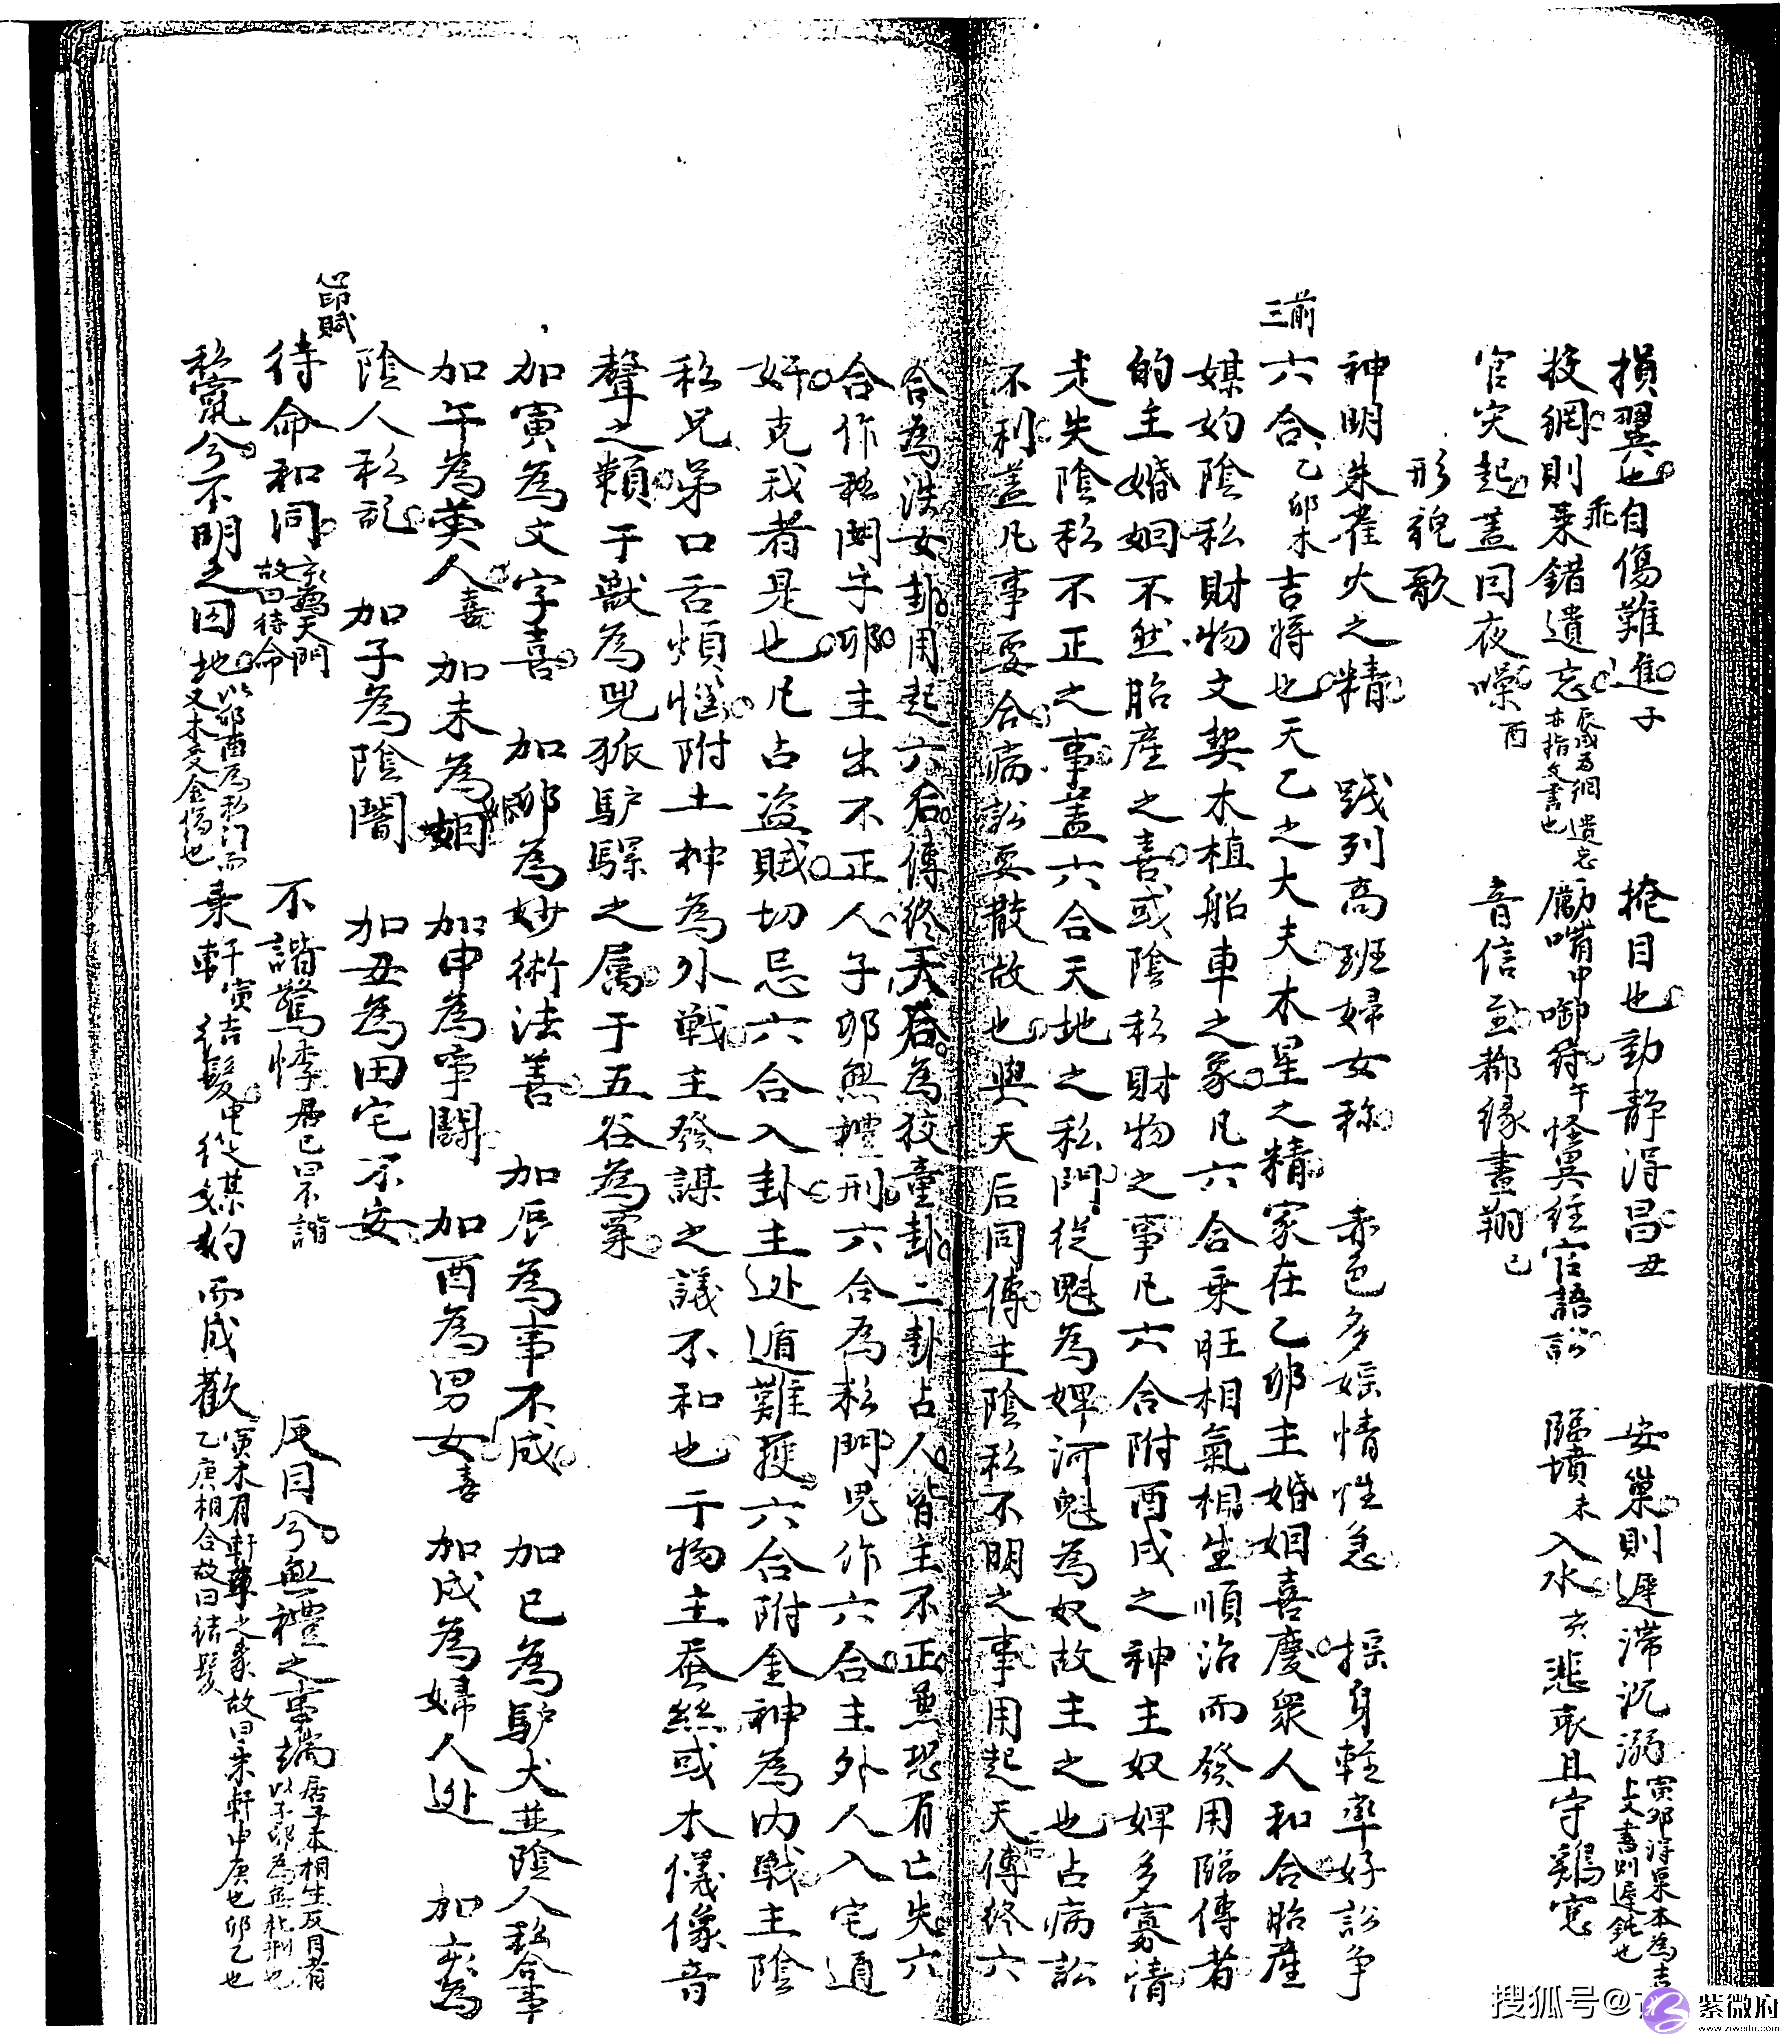 損翼也自傷難進子 掩目也動静得昌丑 安巢則遲滯沉溺寅卯得巢本為吉上文書則遲鈍也
投網則乘錯遺忘辰戌為網遺忘亦指文書也 勵嘴申啣符午怪異经官語訟 臨墳未入水亥悲哀且守鷄窓
乖
官災起盖囙夜噪酉 音信至都緣晝翔巳
形貌歌
神明朱雀火之精 践列高班婦女称 赤色多媱情性急 採身輕率好訟争
前三
六合乙卯木吉將也天乙之大夫木星之精家在乙卯主婚姻喜慶衆人和合胎產
媒妁陰私財物文契木植船車之象凡六合乘旺相氣相生順治而發用臨傳者
的主婚姻不然胎產之喜或陰私財物之事凡六合附酉戌之神主奴婢多寡情
走失陰私不正之事盖六合天地之私門從魁為婢河魁為奴故主之也占病訟
不利盖凡事要合病訟要散故也與天后同傳主陰私不明之事用起天后傳終六
合為泆女卦用起六合傳終天后為狡童卦二卦占人皆主不正兼恐有亡失六
合作騐関乎卯主出不正人子卯無禮刑六合為私門鬼作六合主外人入宅通
奸克我者是也凡占盗賊切忌六合入卦主迯遁難獲六合附金神為内戰主陰
私兄弟口舌煩惱附土神為外戰主發謀之議不和也于物主蚕絲或木儀像音
聲之類于獸為兕狐馿騾之属于五谷為粟
加寅為文字喜 加卯為妙術法善 加辰為事不成 加巳為馿犬並陰人私合事
加午為英人喜 加未為婚姻 加申為爭鬪 加酉為男女喜 加戌為婦人迯 加亥為
陰人私乱 加子為陰闇 加丑為田宅不安
心印賦
待命和同亥為天門故曰待命 不諧驚悸居巳曰不諧 反目兮無禮之事端居子本相生反目者以子卯為無礼刑也
私竄兮不明之因地以卯酉為私门而又木受金傷也 乘軒寅結髮申從媒妁而成歡寅木有軒車之象故曰乘軒申庚也卯乙也乙庚相合故曰结髮
搜狐号@
紫微府
www.ziweifu.com